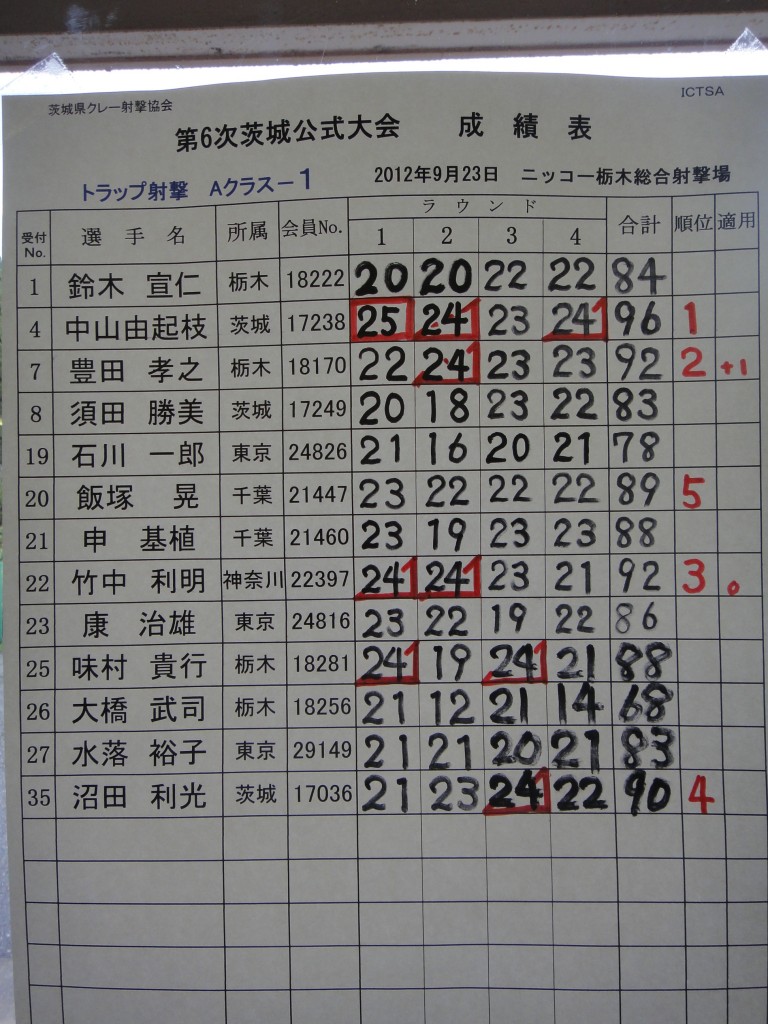 茨城県クレー射撃協会
ICTSA
第6次茨城公式大会 成績表
トラップ射撃 Aクラス－1 2012年9月23日 ニッコー栃木総合射撃場
受付No. 選手名 所属 会員No. ラウンド 合計 順位 適用
1 2 3 4
1 鈴木 宣仁 栃木 18222 20 20 22 22 84
4 中山由起枝 茨城 17238 25 24 1 23 24 1 96 1
7 豊田 孝之 栃木 18170 22 24 1 23 23 92 2 +1
8 須田 勝美 茨城 17249 20 18 23 22 83
19 石川 一郎 東京 24826 21 16 20 21 78
20 飯塚 晃 千葉 21447 23 22 22 22 89 5
21 申 基植 千葉 21460 23 19 23 23 88
22 竹中 利明 神奈川 22397 24 1 24 1 23 21 92 3 0
23 康 治雄 東京 24816 23 22 19 22 86
25 味村 貴行 栃木 18281 24 1 19 24 1 21 88
26 大橋 武司 栃木 18256 21 12 21 14 68
27 水落 裕子 東京 29149 21 21 20 21 83
35 沼田 利光 茨城 17036 21 23 24 1 22 90 4